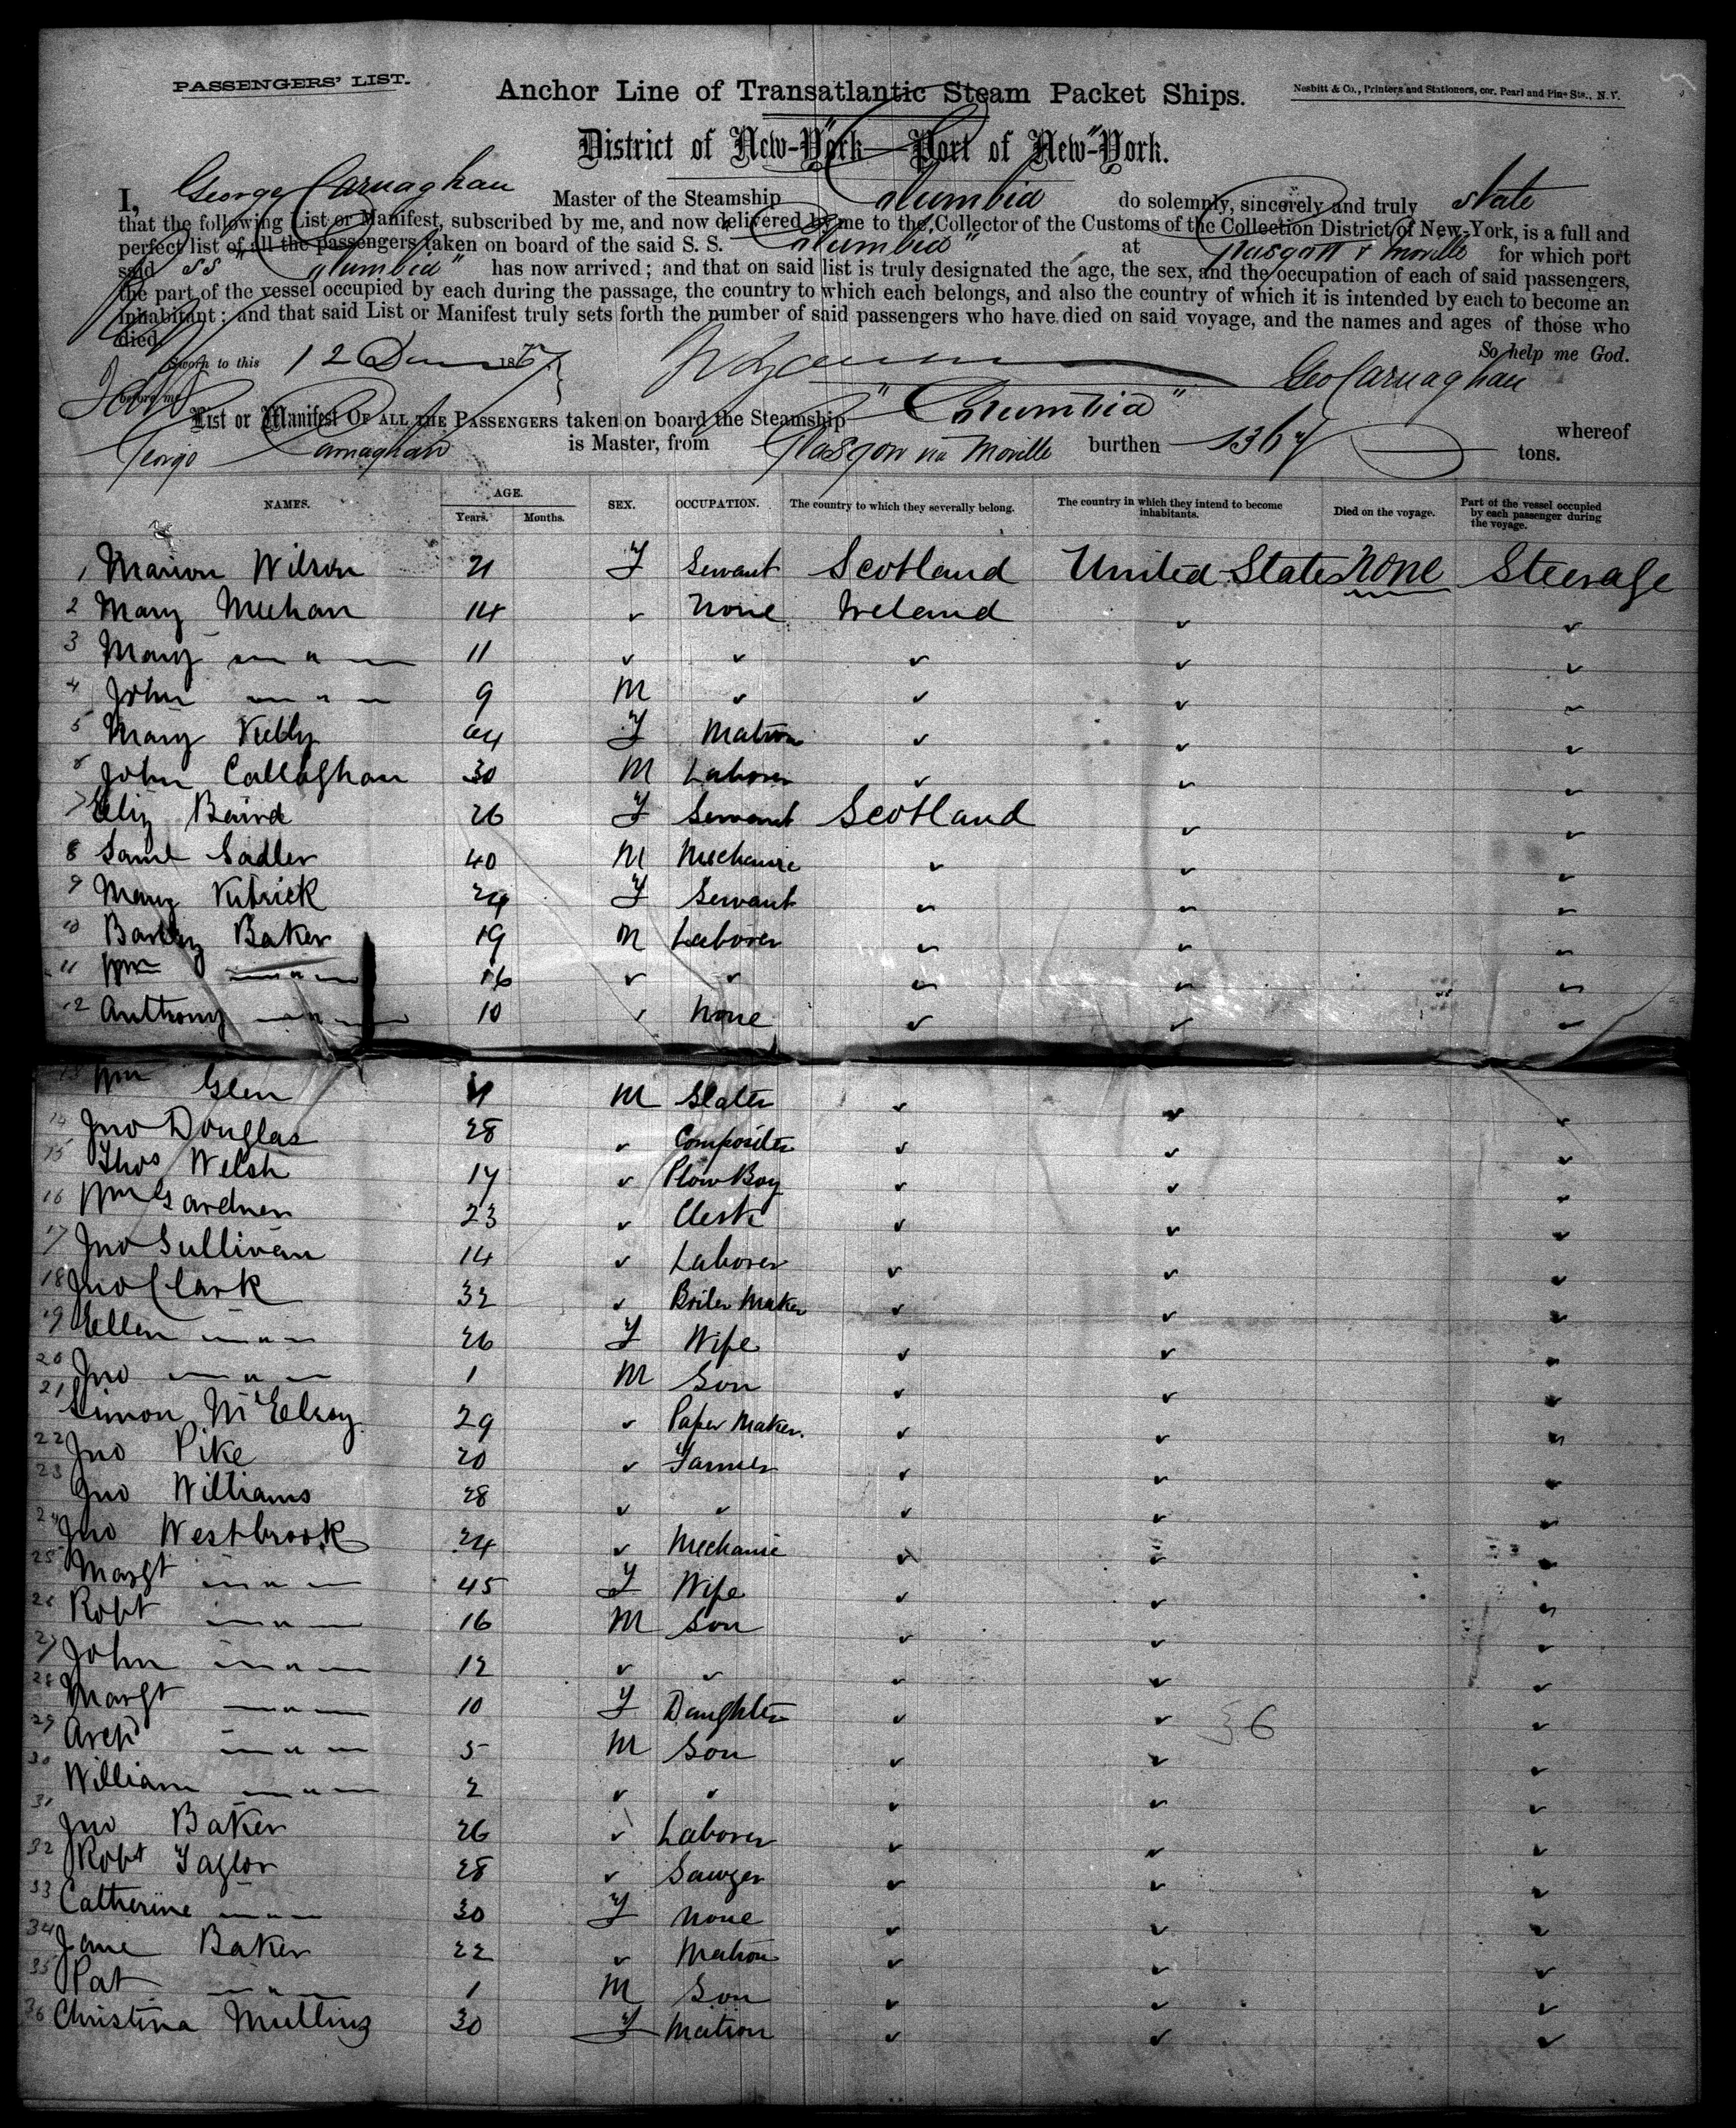 PASSENGERS' LIST.
Anchor Line of Transatlantic Steam Packet Ships.
Nesbitt & Co., Printers and Stationers, cor. Pearl and Pine Sts., N.Y.
District of New-York—Port of New-York.
I, George Carnaghan Master of the Steamship Columbia do solemnly, sincerely and truly state
that the following List or Manifest, subscribed by me, and now delivered by me to the Collector of the Customs of the Collection District of New-York, is a full and
perfect list of all the passengers taken on board of the said S. S. "Columbia" at Glasgow & Moville for which port
said SS "Columbia" has now arrived; and that on said list is truly designated the age, the sex, and the occupation of each of said passengers,
the part of the vessel occupied by each during the passage, the country to which each belongs, and also the country of which it is intended by each to become an
inhabitant; and that said List or Manifest truly sets forth the number of said passengers who have died on said voyage, and the names and ages of those who
died.
So help me God.
Sworn to this 12 1867
before me
Geo Carnaghan
List or Manifest OF ALL THE PASSENGERS taken on board the Steamship "Columbia" whereof
George Carnaghan is Master, from Glasgow via Moville burthen tons.
NAMES. AGE. Years. Months. SEX. OCCUPATION. The country to which they severally belong. The country in which they intend to become inhabitants. Died on the voyage. Part of the vessel occupied by each passenger during the voyage.
1 Marion Wilson 21 F Servant Scotland United States none Steerage
2 Mary Meehan 14 ✓ none Ireland ✓ ✓
3 Mary — " — 11 ✓ ✓ ✓ ✓ ✓
4 John — " — 9 M ✓ ✓ ✓ ✓
5 Mary F Matron ✓ ✓ ✓
6 John Callaghan 30 M Laborer ✓ ✓ ✓
7 Eliz Baird 26 F Servant Scotland ✓ ✓
8 Saml Sadler 40 M Mechanic ✓ ✓ ✓
9 Mary Kitrick 24 F Servant ✓ ✓ ✓
10 Bartley Baker 19 M Laborer ✓ ✓ ✓
11 Wm — " — 16 ✓ ✓ ✓ ✓ ✓
12 Anthony — " — 10 ✓ None ✓ ✓ ✓
13 Wm Glen M Slater ✓ ✓ ✓
14 Jno Douglas 28 ✓ Compositer ✓ ✓ ✓
15 Thos Welsh 17 ✓ Plow Boy ✓ ✓ ✓
16 Wm Gardner 23 ✓ Clerk ✓ ✓ ✓
17 Jno Sullivan 14 ✓ Laborer ✓ ✓ ✓
18 Jno Clark 32 ✓ Boiler Maker ✓ ✓ ✓
19 Ellen — " — 26 F Wife ✓ ✓ ✓
20 Jno — " — 1 M Son ✓ ✓ ✓
21 Simon McElroy 29 ✓ Paper Maker. ✓ ✓ ✓
22 Jno Pike 20 ✓ Farmer ✓ ✓ ✓
23 Jno Williams 28 ✓ ✓ ✓ ✓ ✓
24 Jno Westbrook 24 ✓ Mechanic ✓ ✓ ✓
25 Margt — " — 45 F Wife ✓ ✓ ✓
26 Robt — " — 16 M Son ✓ ✓ ✓
27 John — " — 12 ✓ ✓ ✓ ✓ ✓
28 Margt — " — 10 F Daughter ✓ ✓ ✓
29 Archd — " — 5 M Son ✓ ✓ ✓
36
30 William — " — 2 ✓ ✓ ✓ ✓ ✓
31 Jno Baker 26 ✓ Laborer ✓ ✓ ✓
32 Robt Taylor 28 ✓ Sawyer ✓ ✓ ✓
33 Catherine — " — 30 F none ✓ ✓ ✓
34 Jane Baker 22 ✓ Matron ✓ ✓ ✓
35 Pat — " — 1 M Son ✓ ✓ ✓
36 Christina Mulling 30 F Matron ✓ ✓ ✓